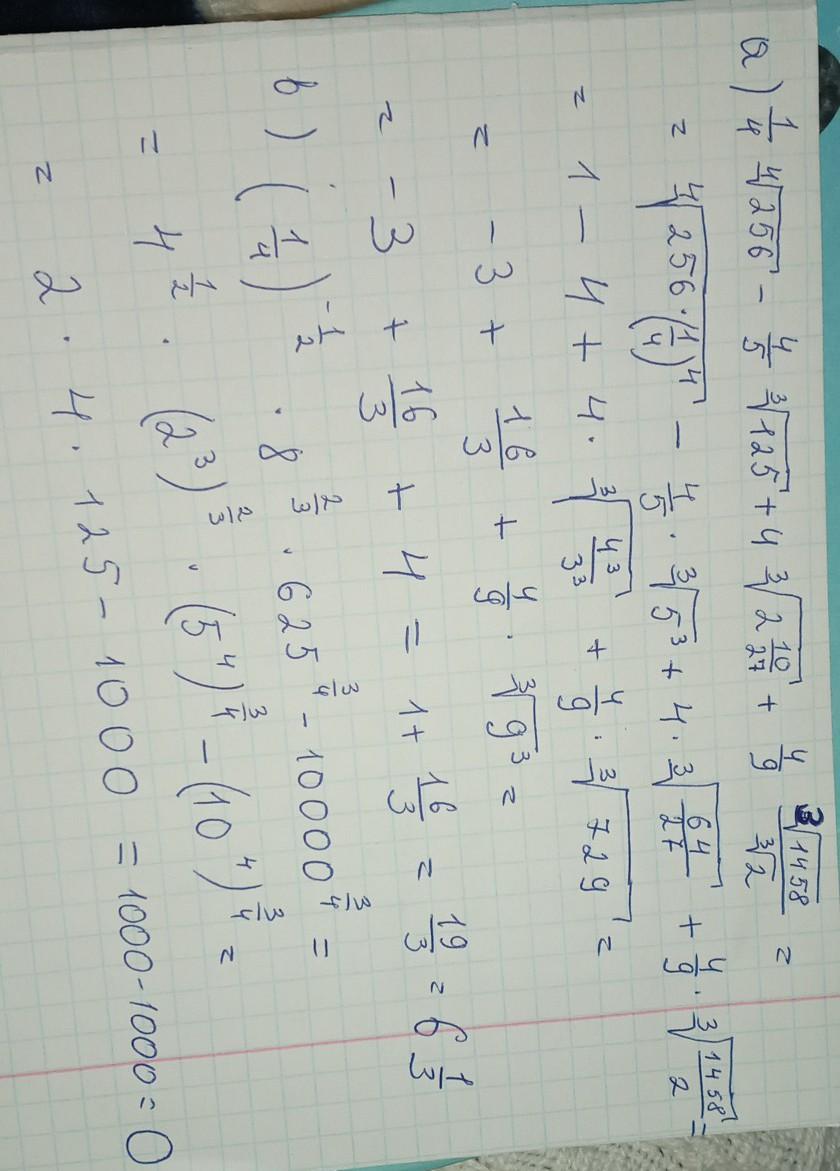 a) 1/4 ∜256 - 4/5 ∛125 + 4 ∛(2 10/27) + 4/9 ∛1458/∛2 =
= ∜(256·(1/4)^4) - 4/5 · ∛(5^3) + 4 · ∛(64/27) + 4/9 · ∛(1458/2) =
= 1 - 4 + 4 · ∛(4^3/3^3) + 4/9 · ∛729 =
= -3 + 16/3 + 4/9 · ∛(9^3) =
= -3 + 16/3 + 4 = 1 + 16/3 = 19/3 = 6 1/3
b) (1/4)^(-1/2) · 8^(2/3) · 625^(3/4) - 10000^(3/4) =
= 4^(1/2) · (2^3)^(2/3) · (5^4)^(3/4) - (10^4)^(3/4) =
= 2 · 4 · 125 - 1000 = 1000 - 1000 = 0